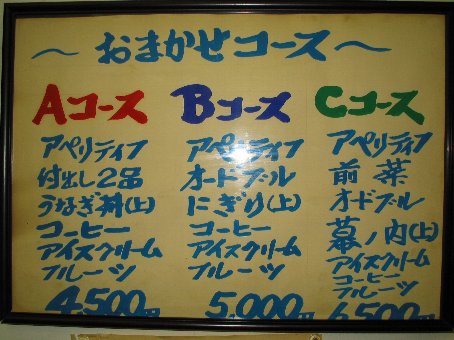 ～おまかせコース～
Aコース
アペリティフ
付出し2品
うなぎ丼(上)
コーヒー
アイスクリーム
フルーツ
4,500円
Bコース
アペリティフ
オードブル
にぎり(上)
コーヒー
アイスクリーム
フルーツ
5,000円
Cコース
アペリティフ
前菜
オドブル
幕ノ内(上)
アイスクリーム
コーヒー
フルーツ
6,500円